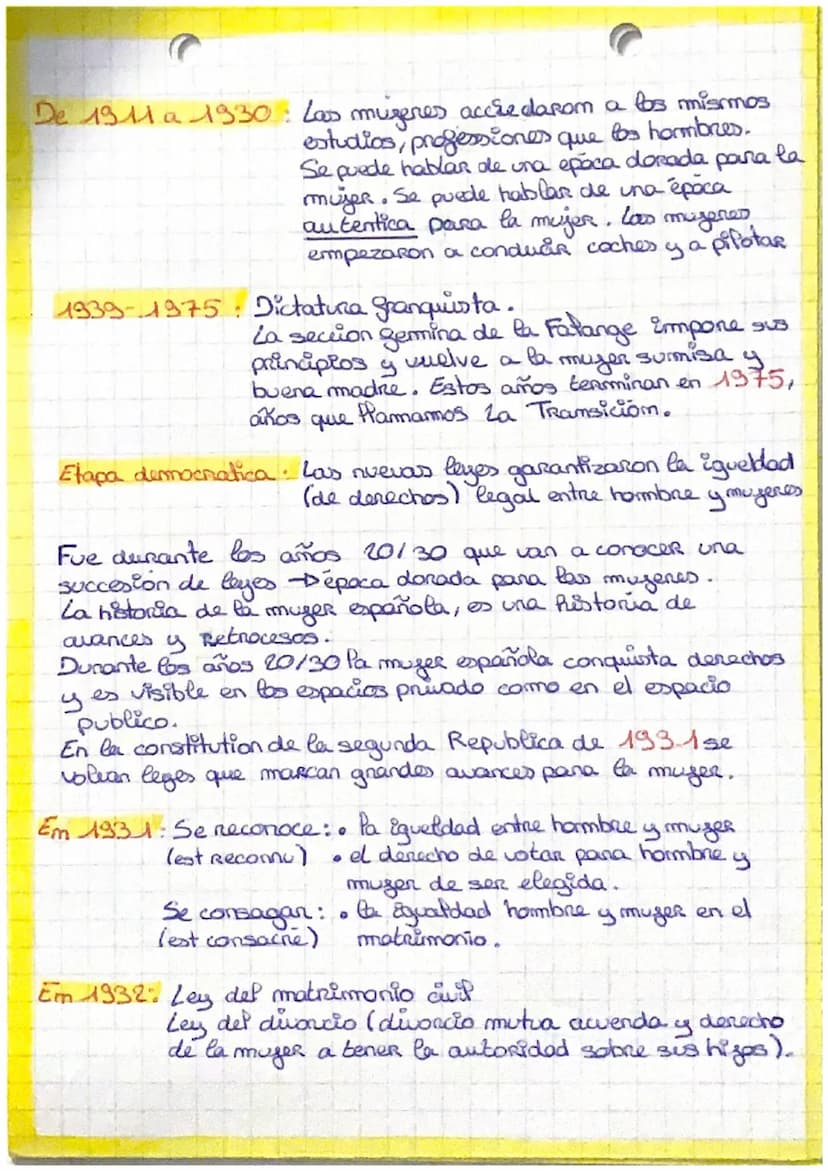 De 1911 a 1930 : Las mujeres accedarom a los mismos
estudios, professiones que los hombres.
Se puede hablar de una epoca dorada para la
mujer. Se puede hablar de una época
autentica para la mujer. Las mugeres
empezaron a conducir coches y a pilotar
1939-1975 : Dictatura franquista.
La seccion femmina de la Falange impone sus
principios y vuelve a la muger sumisa y
buena madre. Estos años terminan en 1975,
años que llamamos La Transición.
Etapa democratica : Las nuevas leyes garantizaron la igueldad
(de derechos) legal entre hombre y mugeres
Fue durante los años 20/30 que van a conocer una
succesion de leyes → época dorada para las mugeres.
La historia de la muger española, es una historia de
avances y retrocesos.
Durante los años 20/30 la muger española conquista derechos
y es visible en los espacios privado como en el espacio
publico.
En la constitution de la segunda Republica de 1931 se
votian leges que marcan grandes avances para la muger.
Em 1931 : Se reconoce : • la igueldad entre hombre y muger
(est reconnu) • el derecho de votar para hombre y
muger de ser elegida.
Se consagan : • la igualdad hombre y muger en el
(est consacré) matrimonio.
Em 1932 : Ley del matrimonio civil
Ley del divorcio (divorcio mutua acuenda y derecho
de la muger a tener la autoridad sobre sus higos).